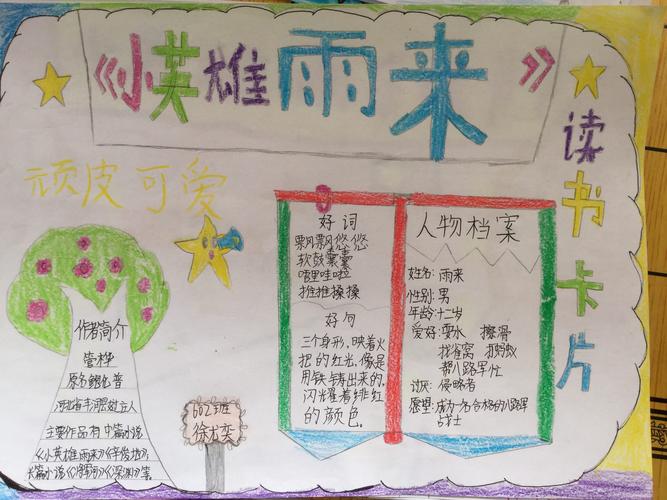 《小英雄雨来》
读书卡片
顽皮可爱
作者简介
管桦
原名鲍化普
河北省丰润县女过庄人
主要作品有中篇小说
《小英雄雨来》《辛俊地》
长篇小说《将军河》《深渊》等。
602班
徐尤奕
好词
飘飘悠悠
软鼓囊囊
唔哩哇啦
推推搡搡
好句
三个身形，映着火
把的红光，像是
用铁铸出来的，
闪光着绯红
的颜色。
人物档案
姓名：雨来
性别：男
年龄：十二岁
爱好：耍水 擦滑
找雀窝 抓蚂蚁
帮八路军忙
讨厌：侵略者
愿望：成为一名合格的八路军
战士